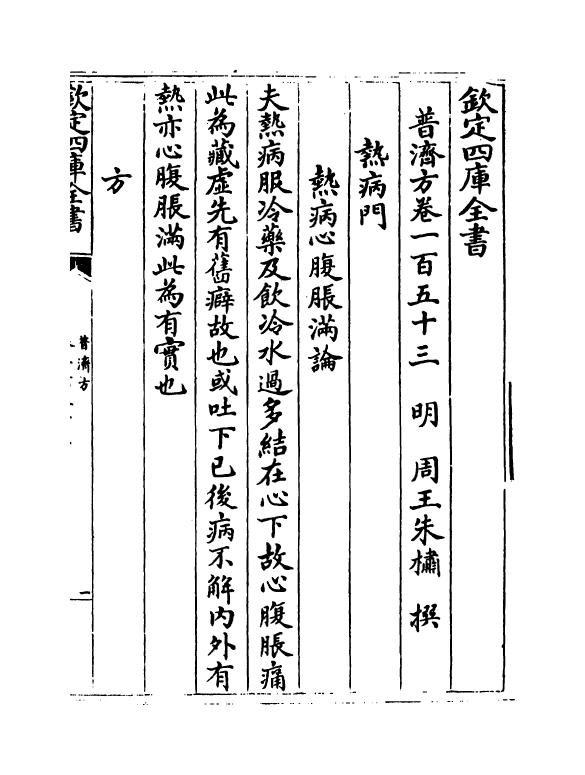 欽定四庫全書
普濟方卷一百五十三　明　周王朱橚　撰
熱病門
熱病心腹脹滿論
夫熱病服冷藥及飲冷水過多結在心下故心腹脹痛
此為藏虛先有舊癖故也或吐下已後病不解内外有
熱亦心腹脹滿此為有實也
方
欽定四庫全書
普濟方
一